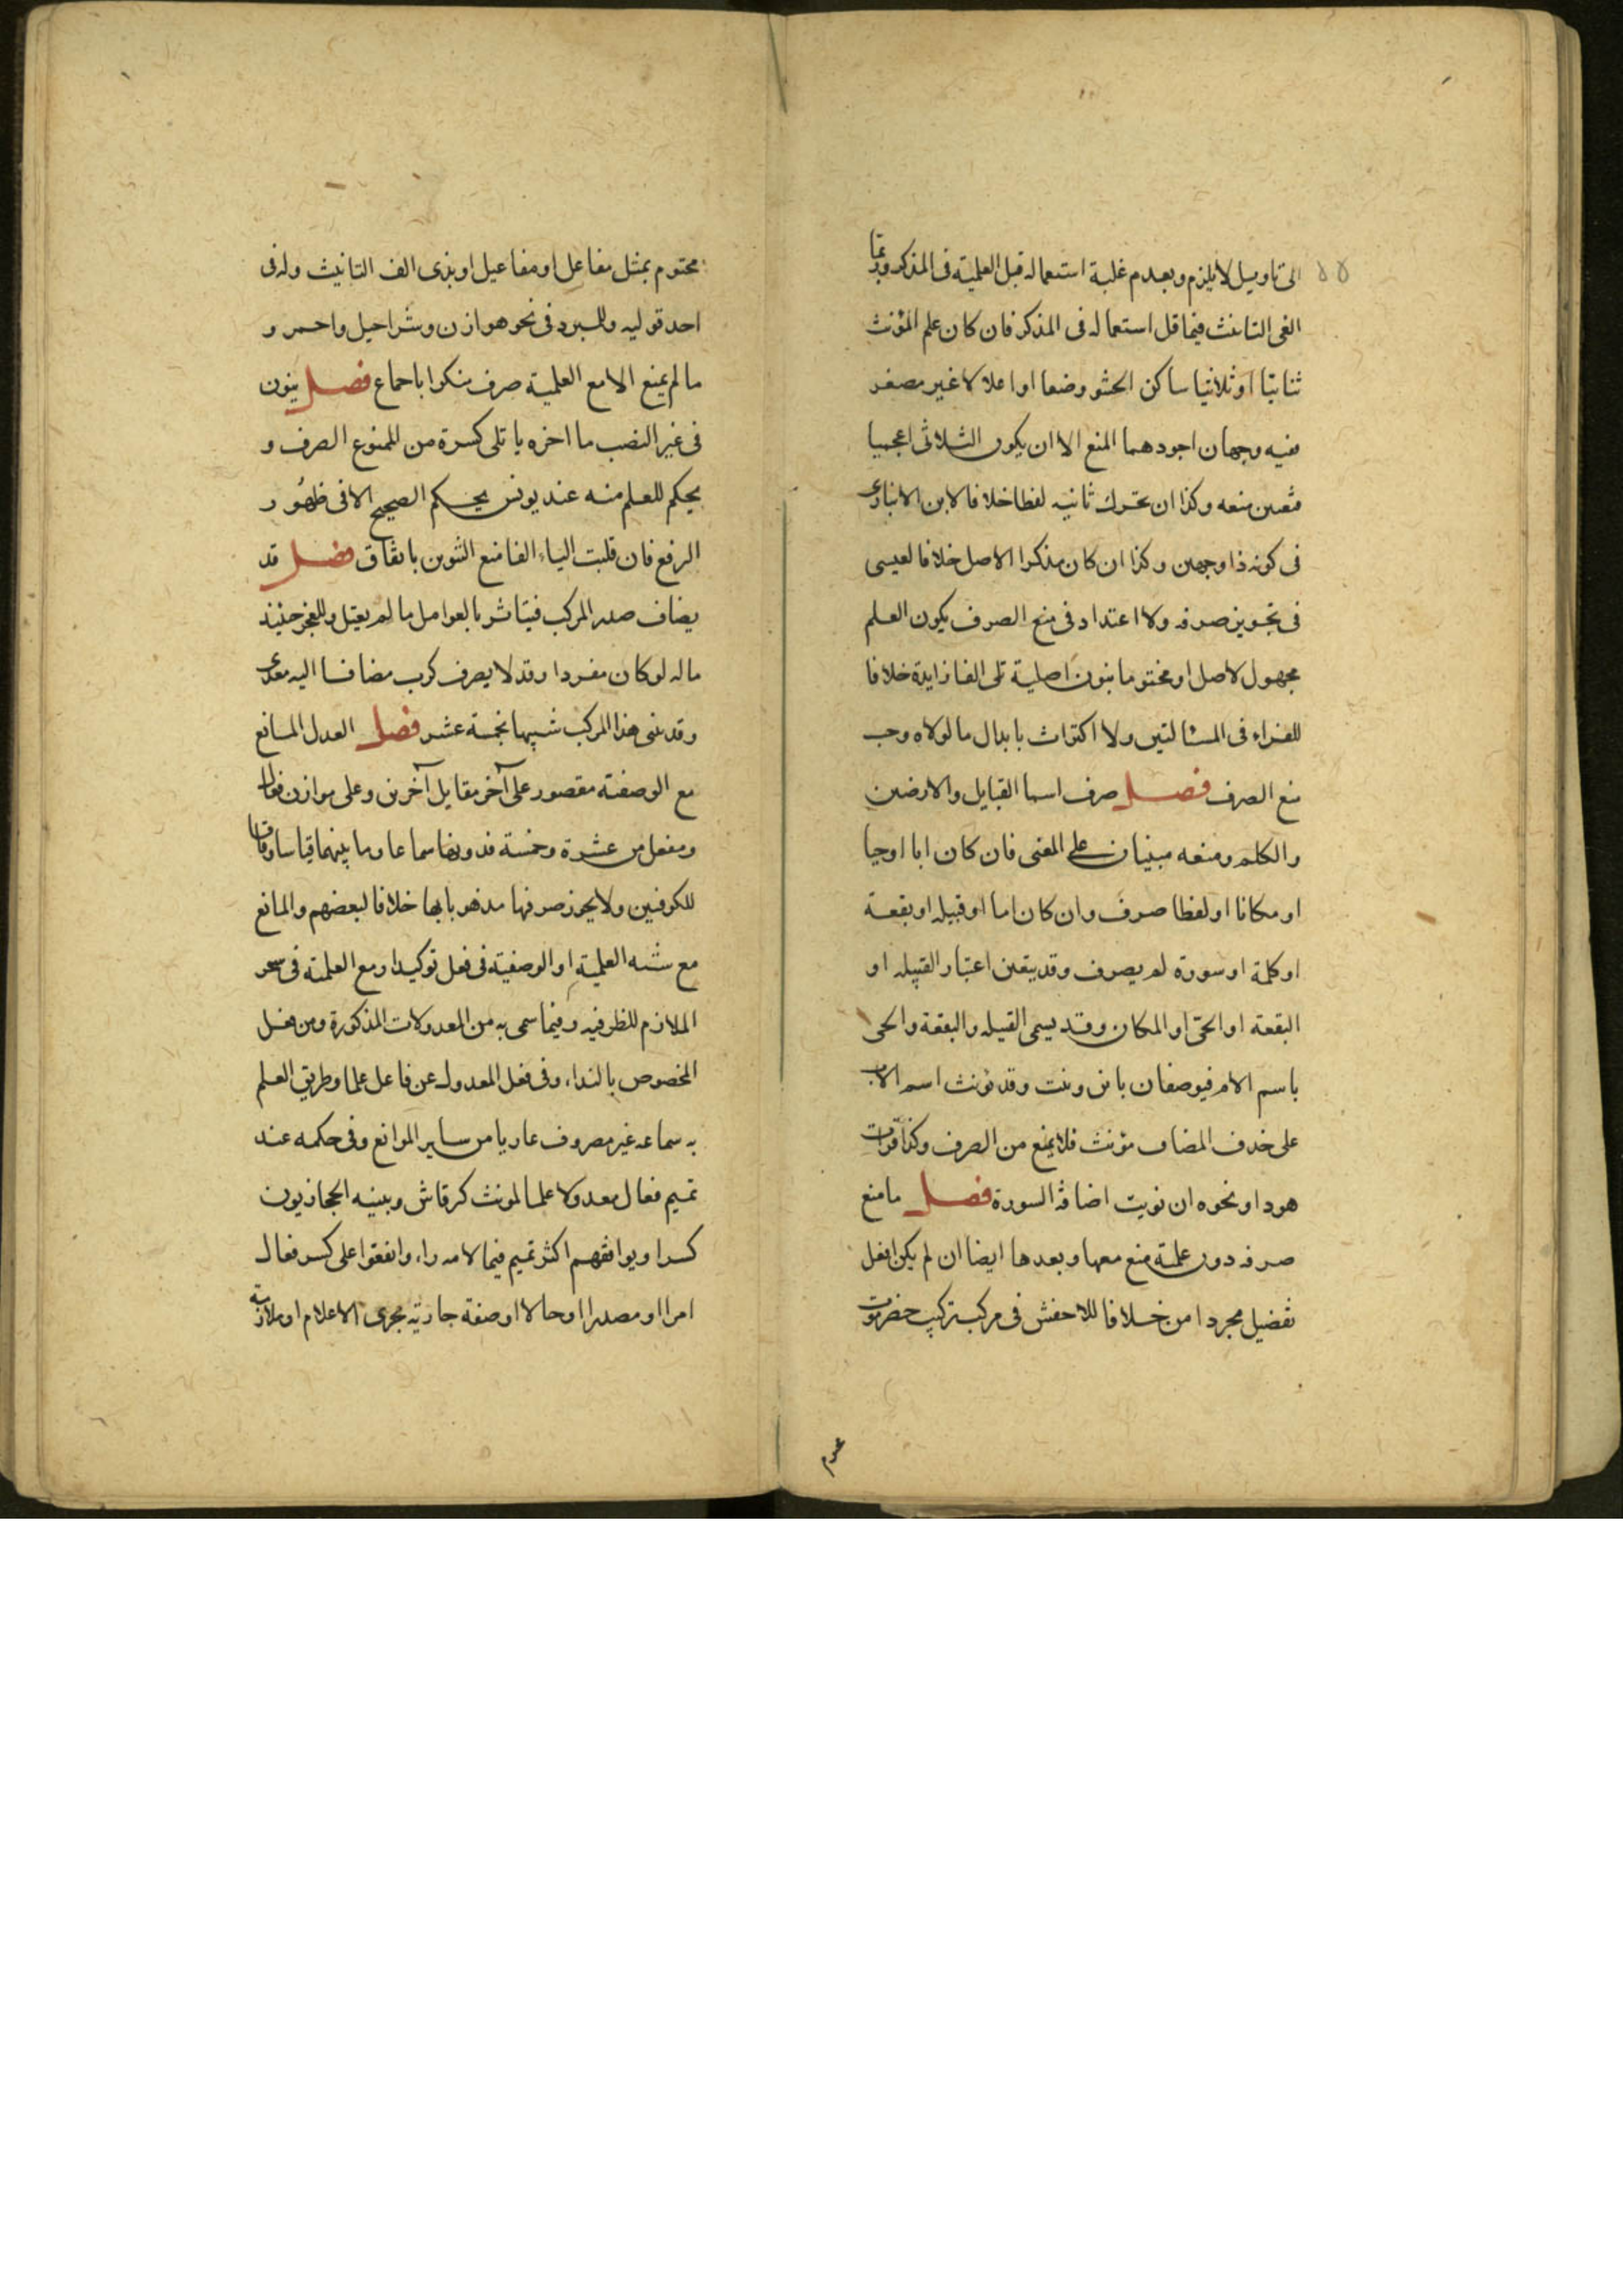 الى تاويل لا يلزم وبعدم غلبة استعماله قبل العلمية فى المذكر وربما
الغى التانيث فيما قل استعماله فى المذكر فان كان علم المؤنث
ثنائيا او ثلاثيا ساكن الحشو وضعا او اعلالا غير مصغر
ففيه وجهان اجودهما المنع الا ان يكون الثلاثى اعجميا
فتعين منعه وكذا ان تحرك ثانيه لفظا خلافا لابن الانبارى
فى كونه ذا وجهين وكذا ان كان مذكرا الاصل خلافا لعيسى
فى تجويز صرفه ولا اعتداد فى منع الصرف بكون العلم
مجهول لاصل او مختوما بنون اصلية تلى الفا زايدة خلافا
للفراء فى المسئالتين ولا اكتراث بابدال ما لولاه وجب
منع الصرف فصل صرف اسما القبايل والارضين
والكلم ومنعه مبنيان على المعنى فان كان ابا او حيا
او مكانا او لفظا صرف وان كان اما او قبيله او بقعة
او كلمة او سورة لم يصرف وقد يتعين اعتبار القبيله او
البقعة او الحىّ او المكان وقد يسمى القبيله والبقعة والحى
باسم الام فيوصفان بابن وبنت وقد يؤنث اسم الاب
على حذف المضاف مؤنث فلا يمنع من الصرف وكذا قرات
هودا ونحوه ان نويت اضافة السورة فصل ما منع
صرفه دون علمية منع معها وبعدها ايضا ان لم يكن افعل
تفضيل مجردا من خلافا للاخفش فى مركب تركيب حضرموت
عدم
مختوم بمثل مفاعل او مفاعيل او بذى الف التانيث وله فى
احد قوليه وللمبرد فى نحو هوازن وشراحيل واحمر و
ما لم يمنع الا مع العلمية صرف منكرا باجماع فصل ينون
فى غير النصب ما اخره يا تلى كسرة من الممنوع الصرف و
يحكم للعلم منه عند يونس بحكم الصحيح الا فى ظهور
الرفع فان قلبت الياء الفا منع التنوين باتفاق فصل قد
يضاف صدر المركب فيتاثر بالعوامل ما لم يعتل وللعجز حينئذ
ماله لو كان مفردا وقد لا يصرف كرب مضافا اليه معدى
وقد بنى هذا المركب شبيها بخمسة عشر فصل العدل المانع
مع الوصفية مقصور على آخر مقابل آخرين وعلى موازن فعال
ومفعل من عشرة وخمسة فدونها سماعا وما بينهما قياسا وفاقا
للكوفيين ولا يجوز صرفها مذهوبا بها خلافا لبعضهم والمانع
مع شبه العلمية او الوصفية فى فعل توكيدا ومع العلمية فى سحر
الملازم للظرفيه وفيما سمى به من المعدولات المذكورة ومن فعل
المخصوص بالنداء وفى فعل المعدول عن فاعل علما وطريق العلم
به سماعه غير مصروف عاريا من ساير الموانع وفى حكمه عند
تميم فعال معدولا علما لمونث كرقاش ويبنيه الحجازيون
كسرا ويوافقهم اكثر تميم فيما لامه راء واتفقوا على كسر فعال
امرا او مصدرا او حالا او صفة جارية مجرى الاعلام او ملازمة